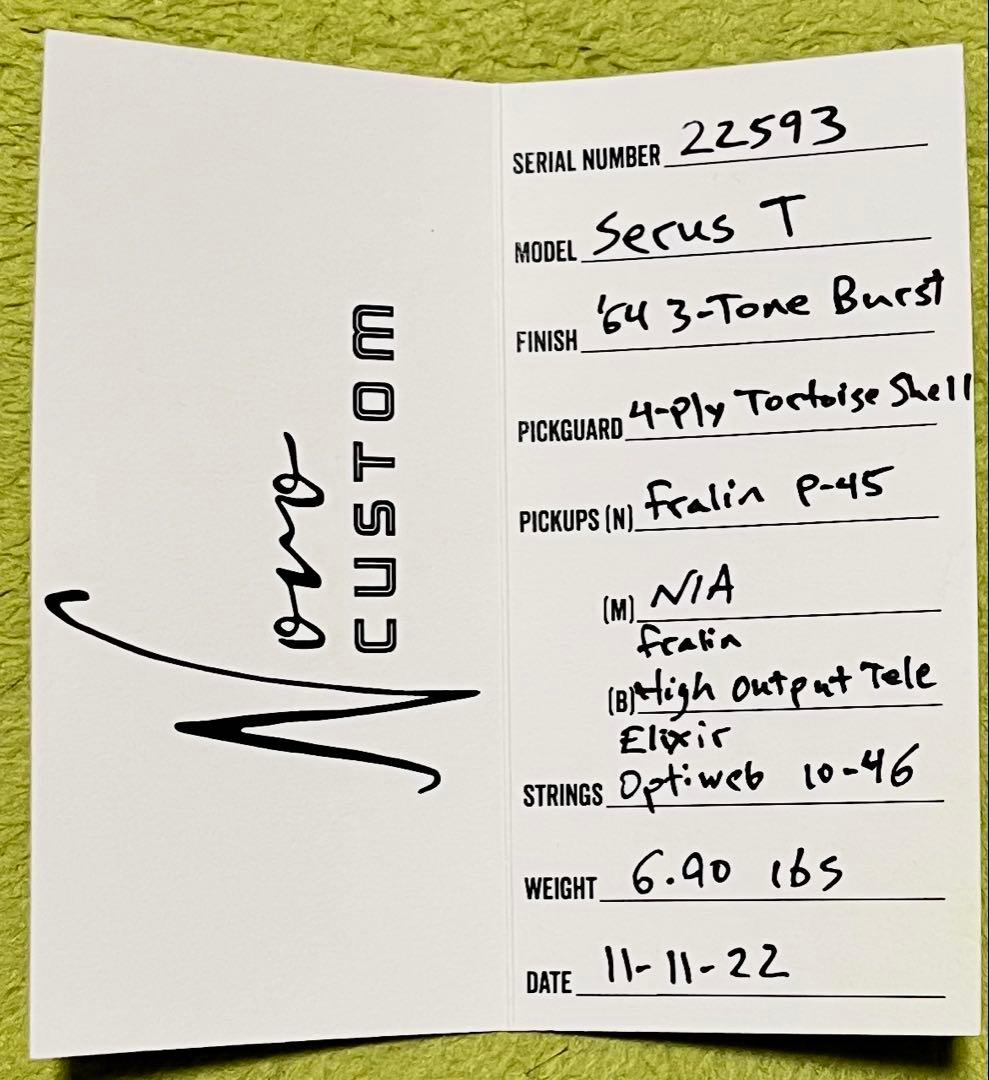 Nono
CUSTOM
SERIAL NUMBER 22593
MODEL Serus T
FINISH '64 3-Tone Burst
PICKGUARD 4-Ply Tortoise Shell
PICKUPS (N) Fralin P-45
(M) N/A
Fralin
(B) High Output Tele
Elixir
STRINGS Optiweb 10-46
WEIGHT 6.90 lbs
DATE 11-11-22